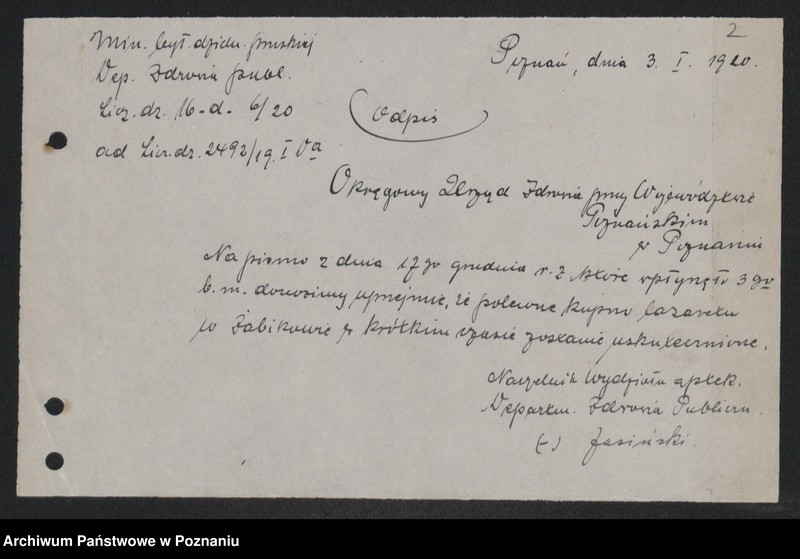 2
Min. był. dzieln. pruskiej
Dep. Zdrowia publ.
Licz. dz. 16-d- 6/20
ad Licz. dz. 2492/19. I Va
Poznań, dnia 3. I. 1920.
Odpis
Okręgowy Urząd Zdrowia przy Województwie
Poznańskim
w Poznaniu
Na pismo z dnia 17go grudnia r. z. które wpłynęło 3go
b. m. donosimy uprzejmie, że kupno lazaretu
w Żabikowie w krótkim czasie zostanie uskutecznione.
Naczelnik Wydziału aptek.
Departm. Zdrowia Publiczn.
(-) Jasiński.
Archiwum Państwowe w Poznaniu